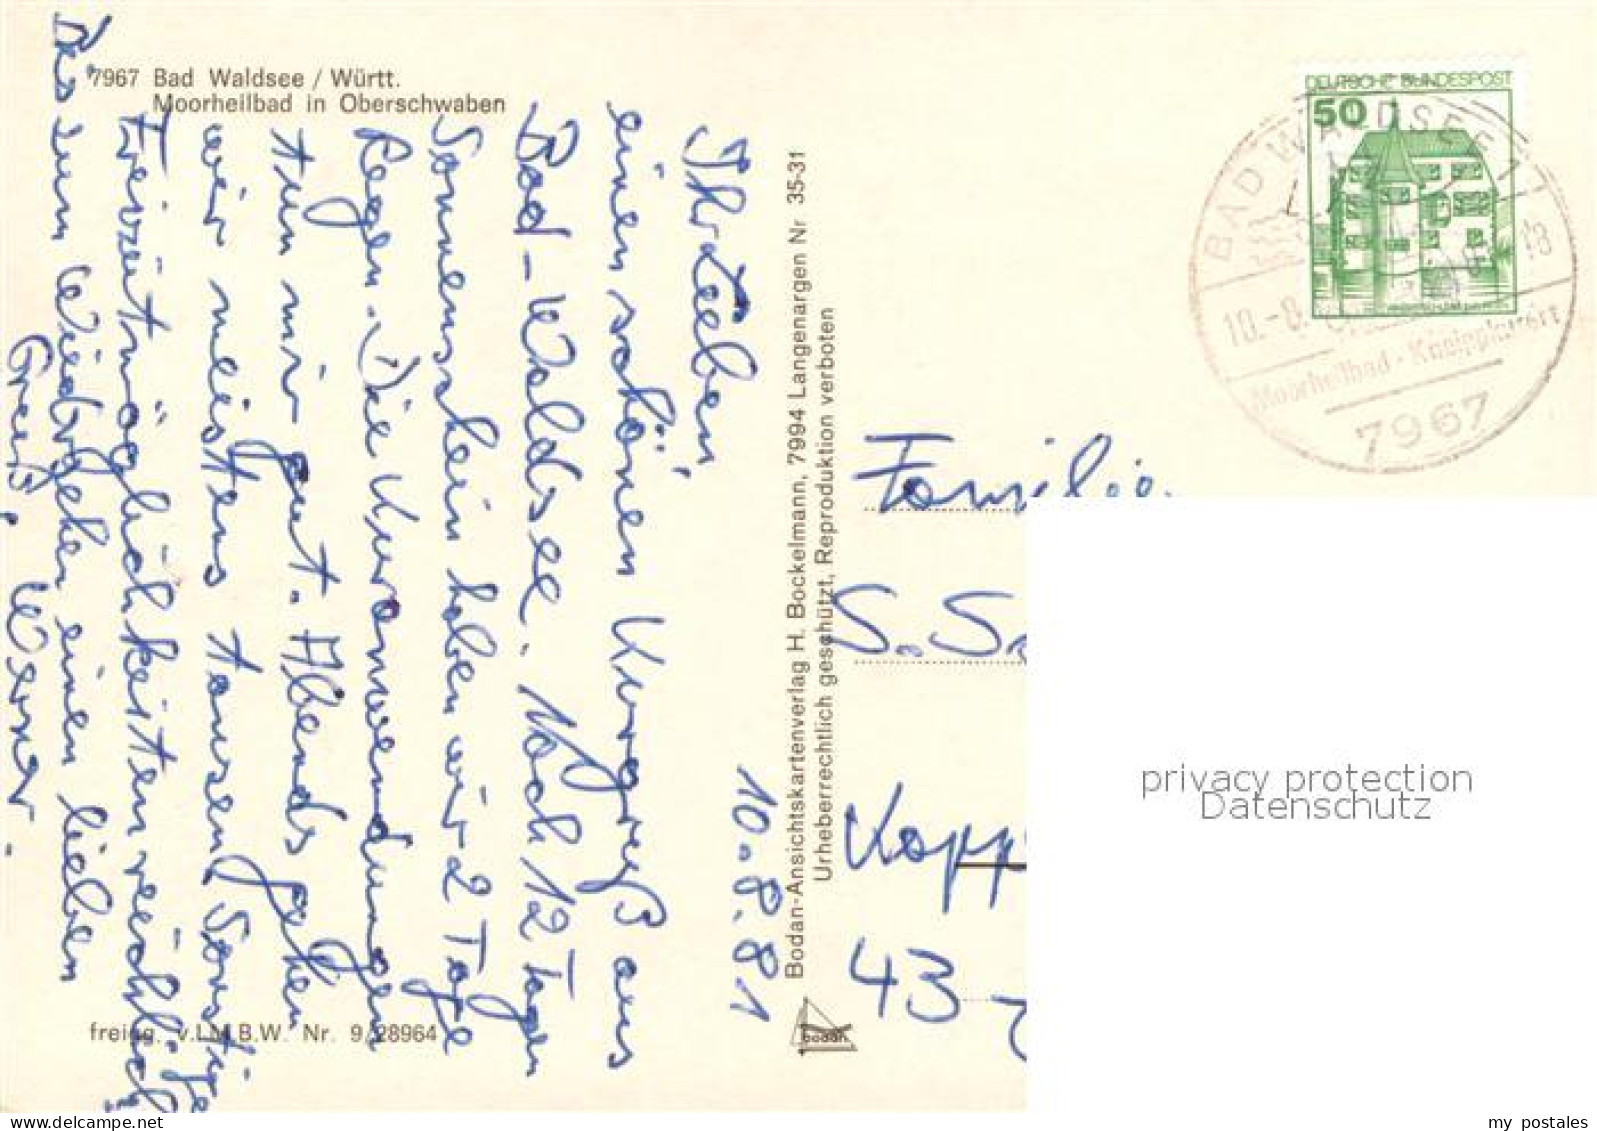 7967 Bad Waldsee / Württ.
Moorheilbad in Oberschwaben
10.8.81
Ihr Lieben,
einen schönen Kurgruß aus
Bad-Waldsee. Nach 12 Tagen
Sonnenschein haben wir 2 Tage
Regen. Die Kuranwendungen
tun mir gut. Abends gehen
wir meistens tanzen, Sonstige
Freizeitmöglichkeiten reichlich
Bis zum Wiedersehen einen lieben
Gruß, Werner.
freigg. v.I.M.B.W. Nr. 9/28964
Bodan-Ansichtskartenverlag H. Bockelmann, 7994 Langenargen Nr 35-31
Urheberrechtlich geschützt, Reproduktion verboten
bodan
DEUTSCHE BUNDESPOST
50
BAD WALDSEE 1
10.-8.
18
Moorheilbad · Kneippkurort
7967
Familie
S.
Kopp
43
privacy protection
Datenschutz
my postales